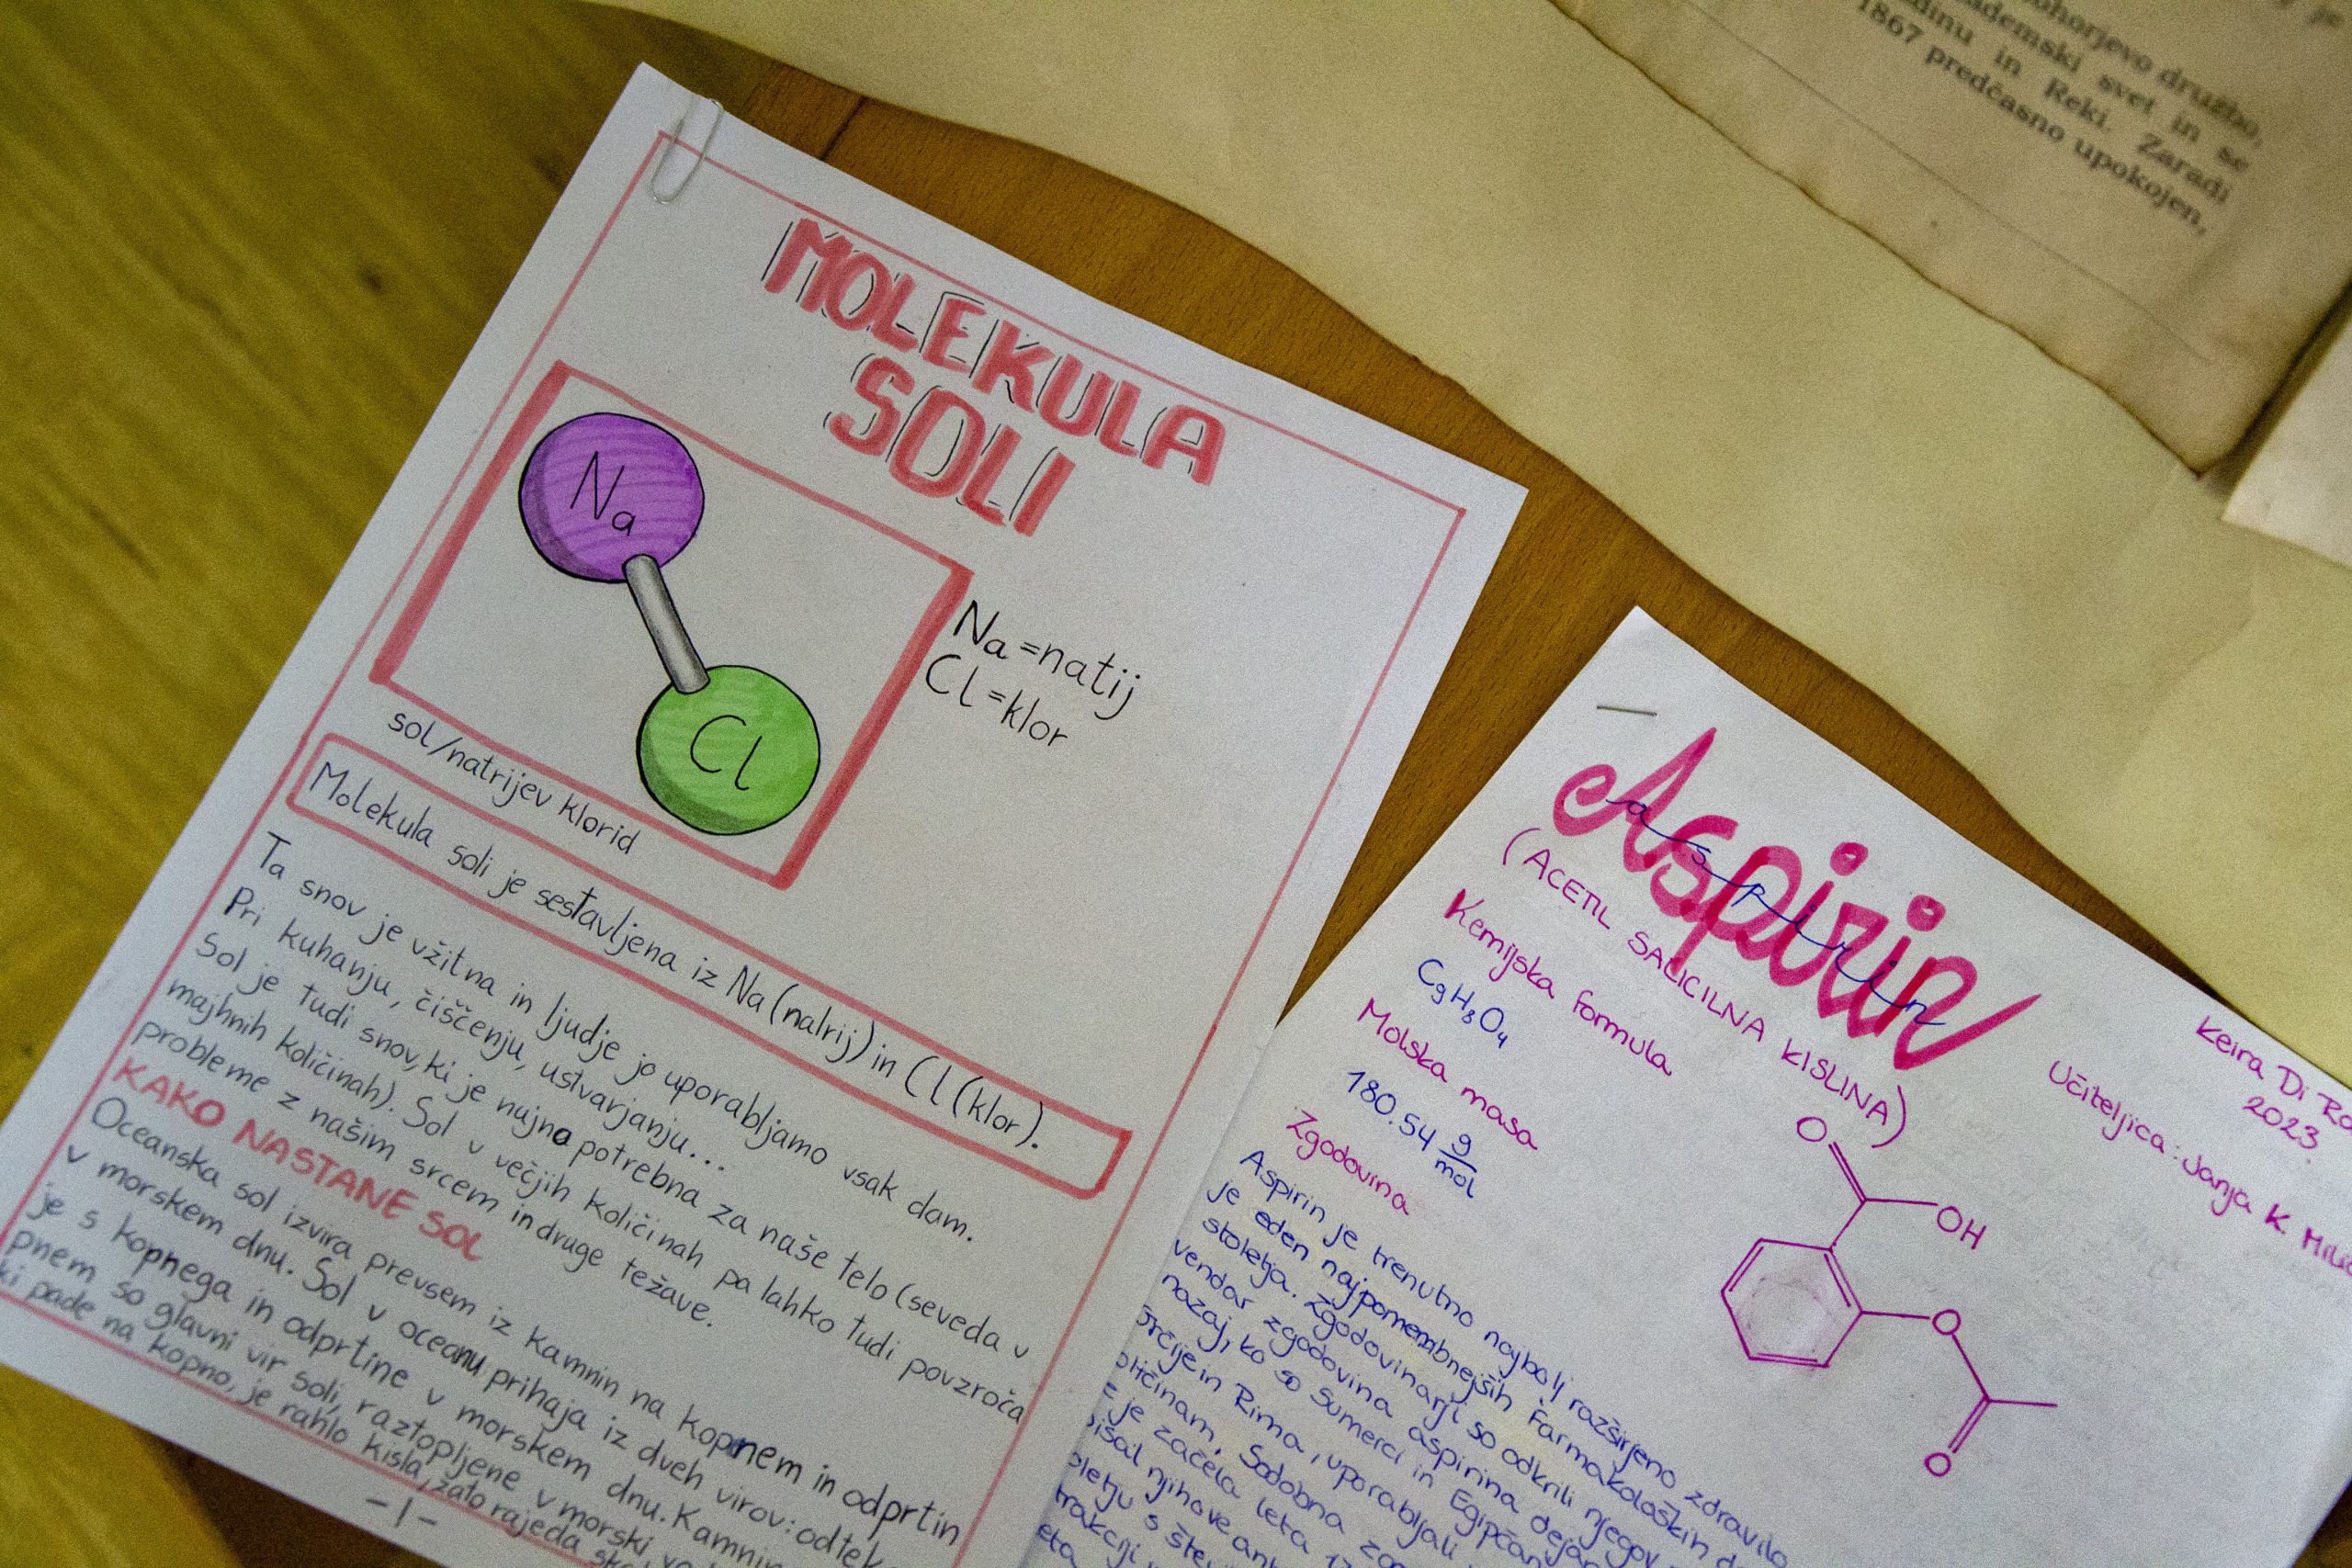 MOLEKULA
SOLI
Na
Cl
Na = natij
Cl = klor
sol/natrijev klorid
Molekula soli je sestavljena iz Na (natrij) in Cl (klor).
Ta snov je vžitna in ljudje jo uporabljamo vsak dam.
Pri kuhanju, čiščenju, ustvarjanju...
Sol je tudi snov, ki je nujno potrebna za naše telo (seveda v
majhnih količinah). Sol v večjih količinah pa lahko tudi povzroča
probleme z našim srcem in druge težave.
KAKO NASTANE SOL
Oceanska sol izvira prevsem iz kamnin na kopnem in odprtin
v morskem dnu. Sol v oceanu prihaja iz dveh virov: odtek
je s kopnega in odprtine v morskem dnu. Kamnin
pnem so glavni vir soli, raztopljene v morski
ki pade na kopno, je rahlo kisla, zato
-1-
Aspirin
aspirin
(ACETIL SALICILNA KISLINA)
Keira Di
2023
Učiteljica: Janja K.
Kemijska formula
C9H8O4
Molska masa
180.54 g/mol
O
OH
O
O
Zgodovina
Aspirin je trenutno najbolj razširjeno zdravilo
je eden najpomembnejših farmakoloških
stoletja. Zgodovinarji so odkrili njegov
vendar zgodovina aspirina
nazaj, ko so Sumerci in
in Rima, uporabljali
Sodobna
je začela leta
njihove
s
ohorjevo družbo,
ademski svet in se
dinu in Reki. Zaradi
1867 predčasno upokojen,